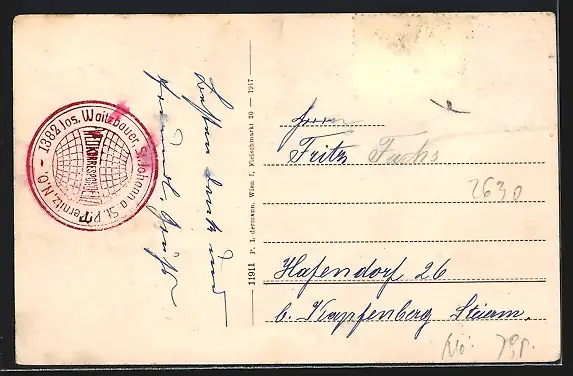 1382 Jos. Waitzbauer, St. Johann a. St. P. Pernitz, N.Ö.
WELTKORRESPONDENZ
Besten Dank und
freundl. Grüße
11911 P. Ledermann, Wien I, Fleischmarkt 20 — 1917
Herrn
Fritz Fuchs
2630
Hafendorf 26
b. Kapfenberg Steierm.
Nö.